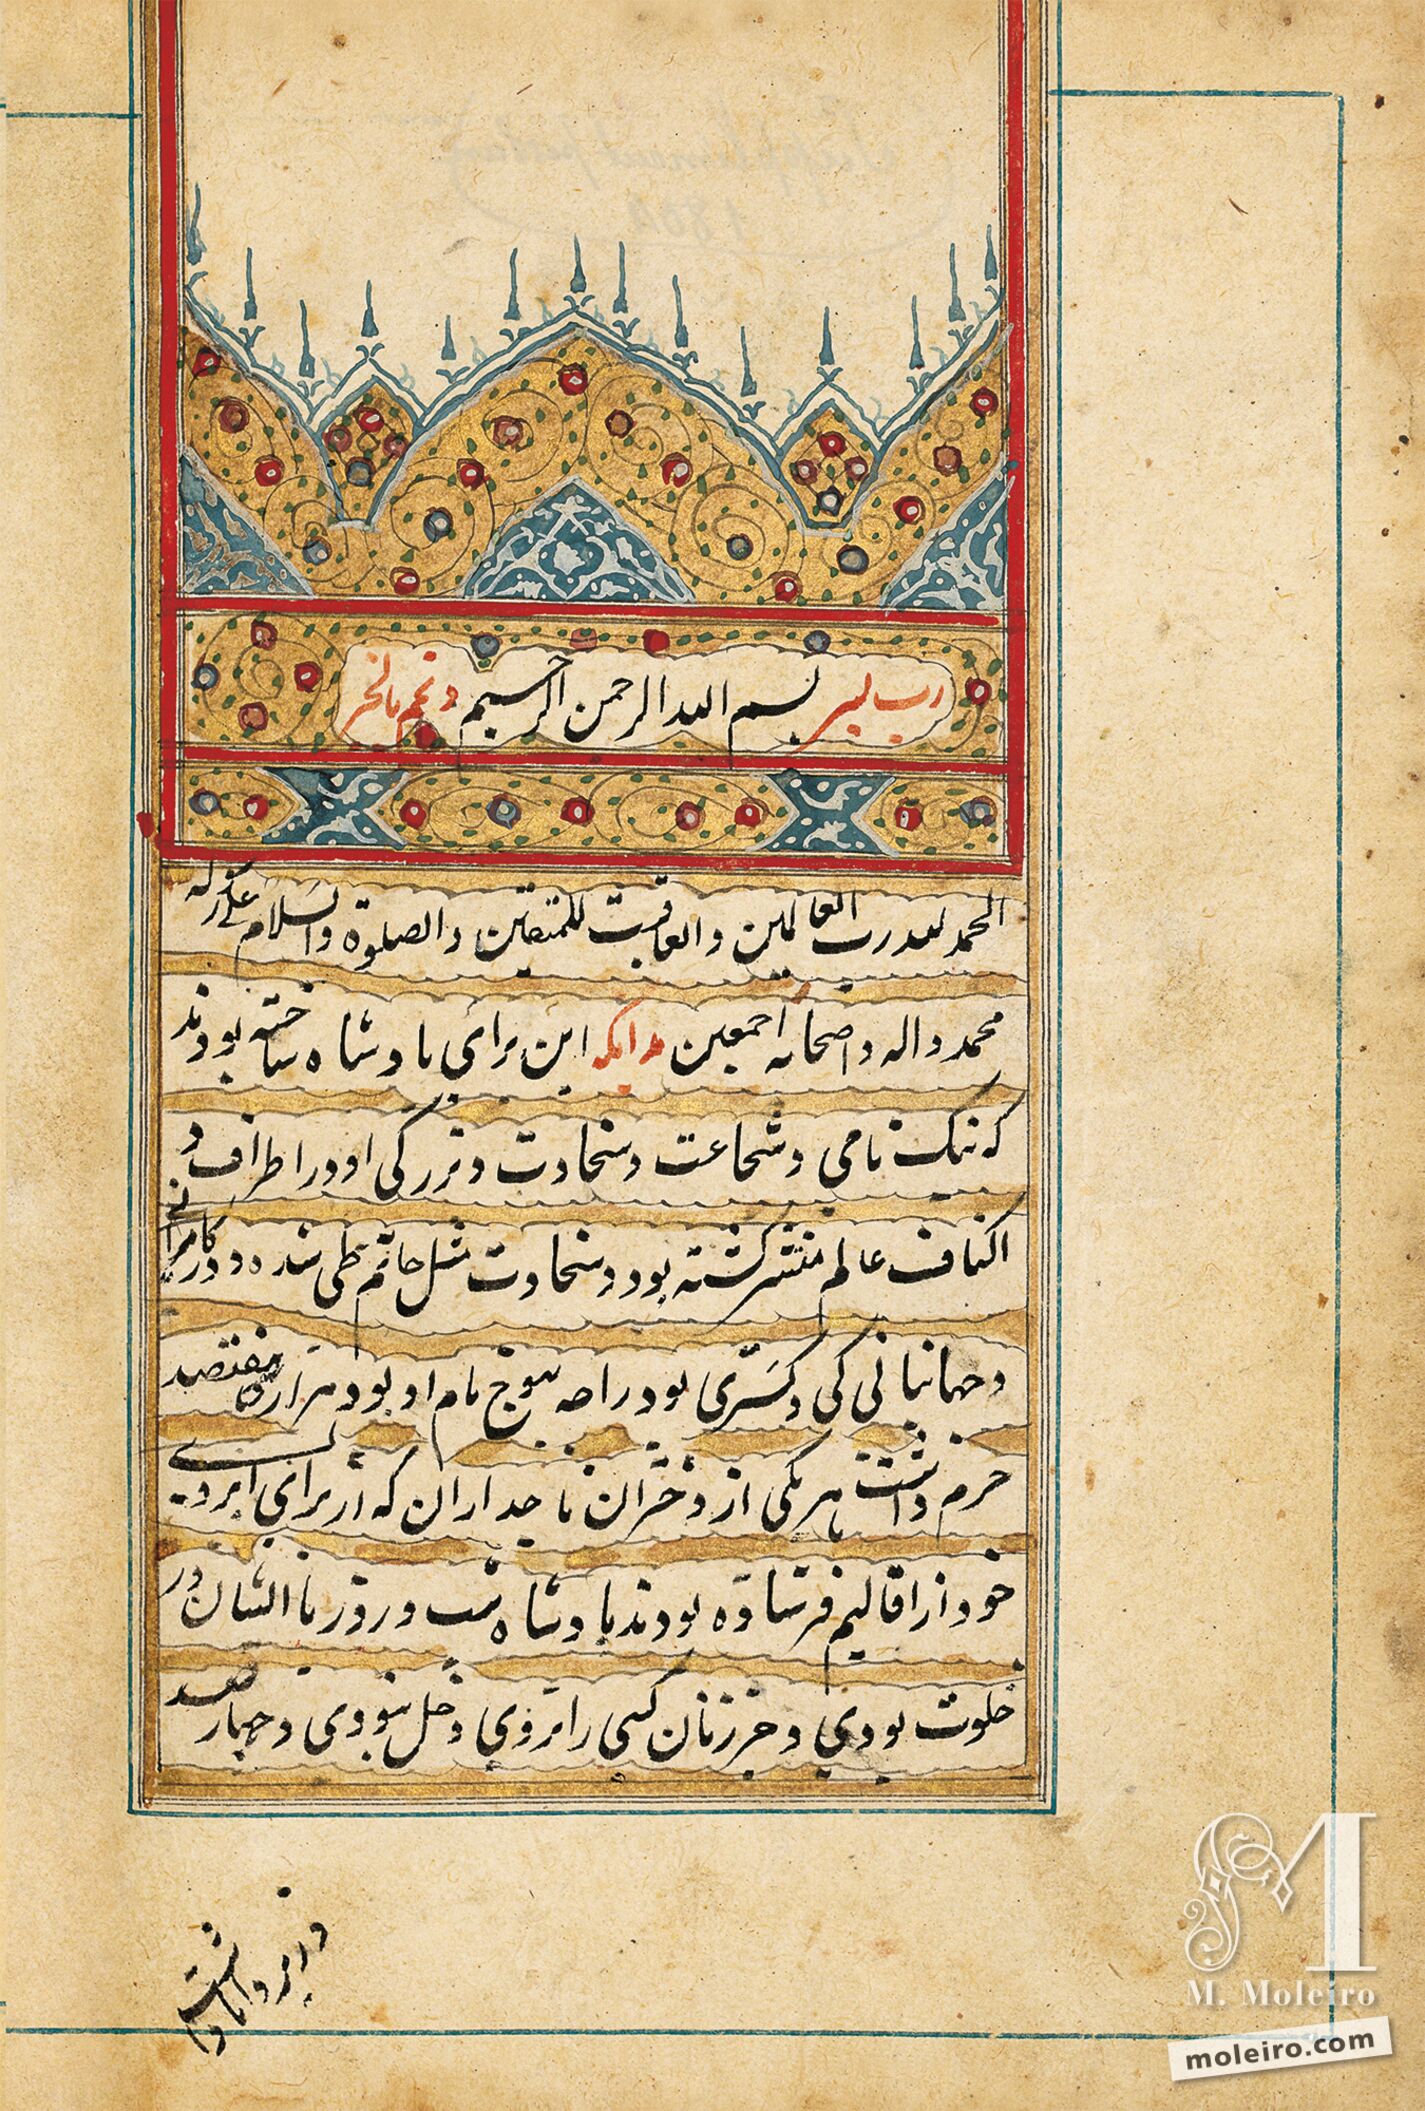 رب یسر بسم الله الرحمن الرحیم و تمم بالخیر
الحمد لله رب العالمین والعاقبت للمتقین والصلوة والسلام علی رسوله
محمد واله واصحابه اجمعین بدانکه این برای بادشاه ساخته بودند
که نیک نامی و شجاعت و سخاوت و بزرگی او در اطراف و
اکناف عالم منتشر گشته بود و سخاوت مثل حاتم طی شده و در کامرانی
و جهانبانی کی و کسری بود راجه بهوج نام او بود هزار و هفتصد
حرم داشت هر یکی از دختران تاجداران که از برای ابروی
خود از اقالیم فرستاده بودند بادشاه شب و روز با ایشان در
خلوت بودی و جز زنان کسی را بروی دخل نبودی و چهارصد
وزیر دانا داشت
M. Moleiro
moleiro.com